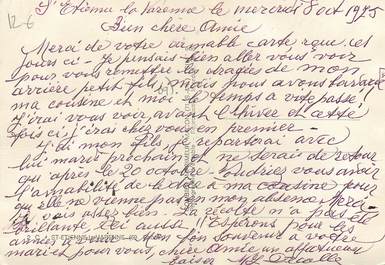 St Etienne la Varenne le mercredi 8 oct 1975
Bien chère Amie
Merci de votre aimable carte, reçue ces
jours ci - Je pensais bien aller vous voir
pour vous remettre les dragées de mon
arrière petit fils, mais nous avons
ma cousine et moi le temps a vite passé !
J'irai vous voir, avant l'hiver et cette
fois ci, j'irai chez vous en premier -
mon fils, je repartirai avec
lui mardi prochain et ne serai de retour
qu'après le 20 octobre. Voudriez vous avoir
l'amabilité de le dire à ma cousine pour
qu'elle ne vienne pas en mon absence. Merci
La récolte n'a pas été
brillante, ici aussi !! Espérons pour les
années à venir. Mon bon souvenir à votre
mari et pour vous, chère Amie un affectueux
baiser